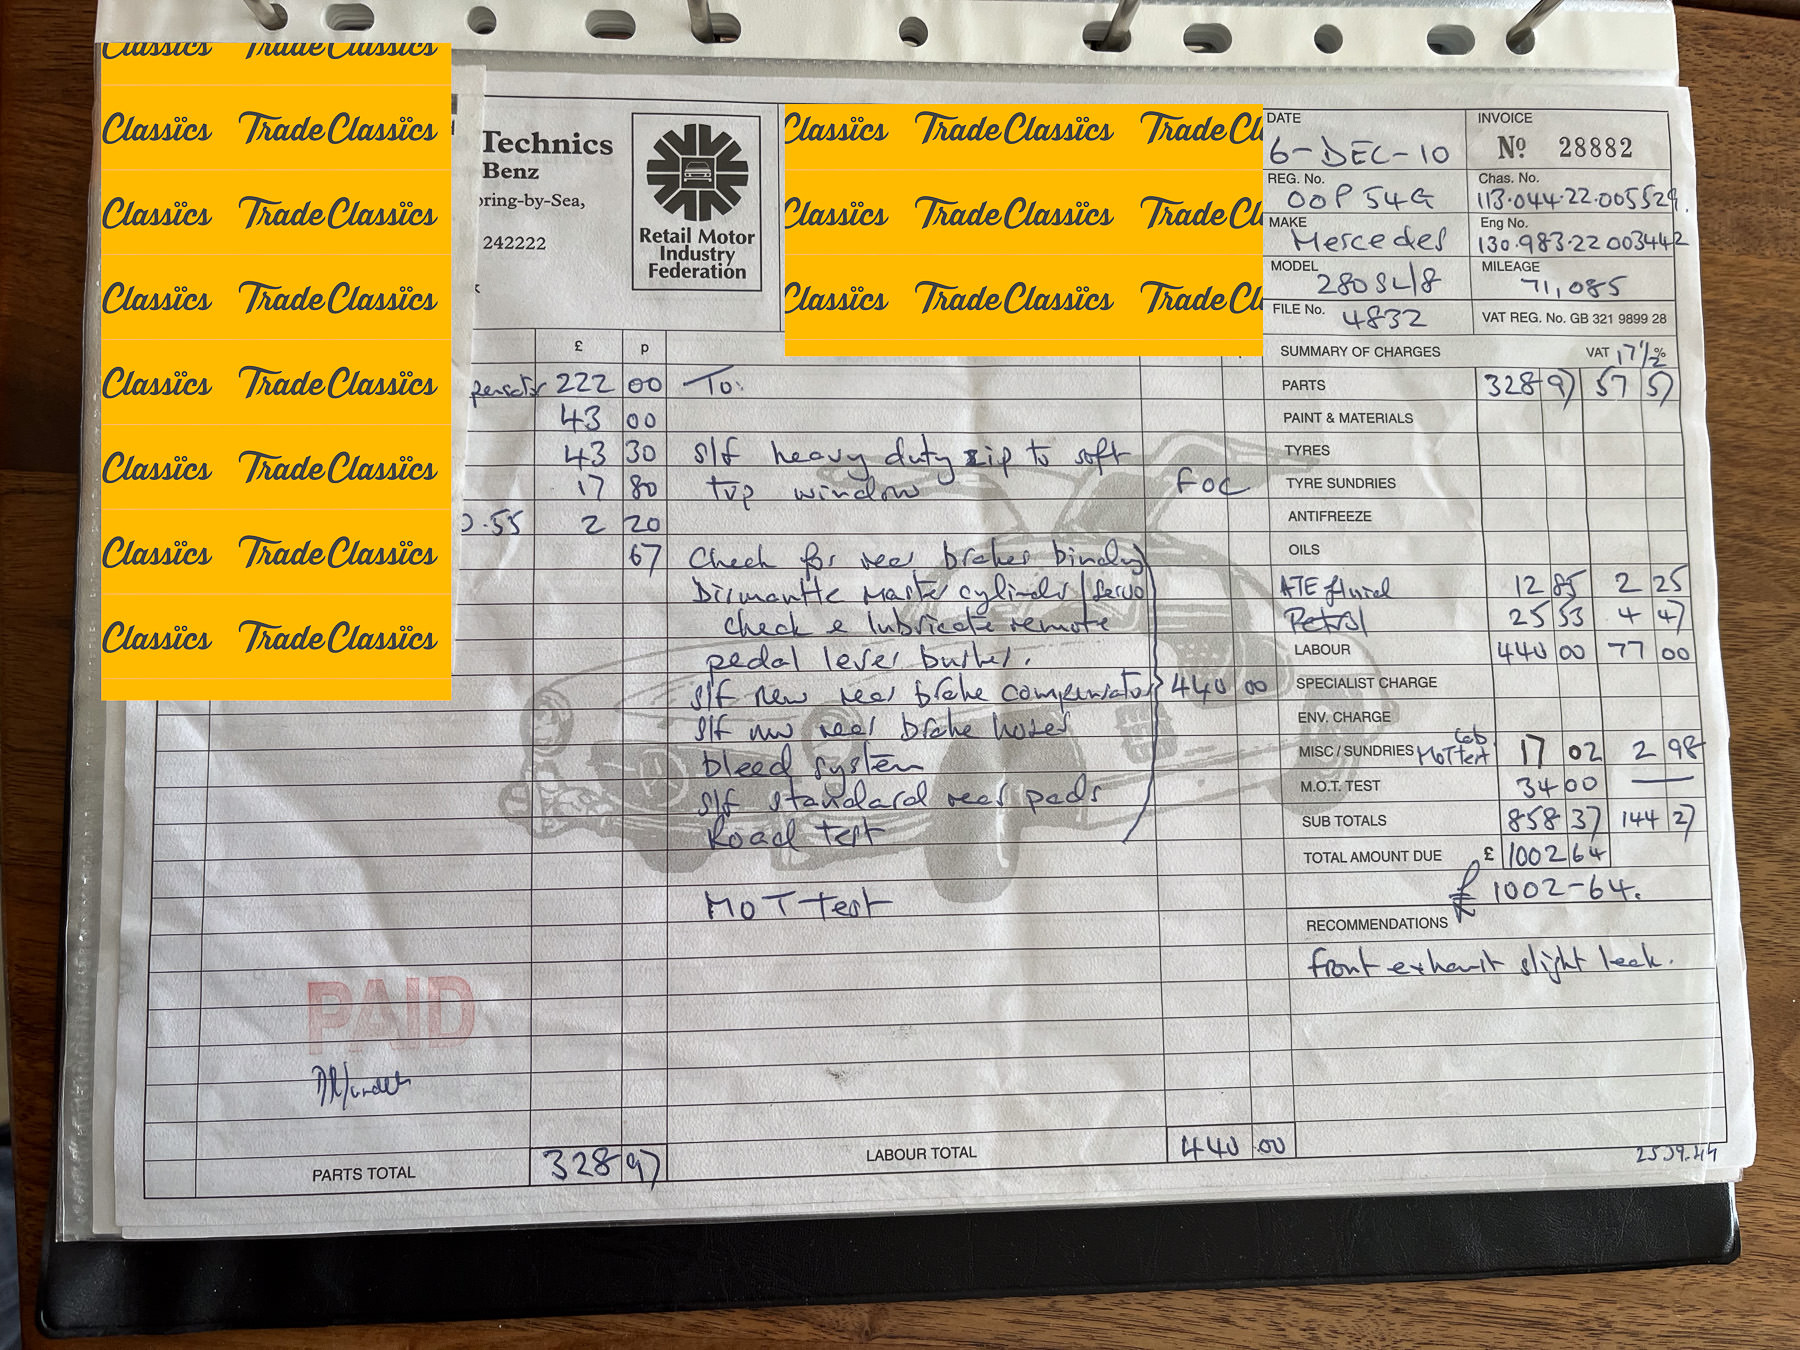 Classics Trade Classics
Classics Trade Classics
Classics Trade Classics
Classics Trade Classics
Classics Trade Classics
Classics Trade Classics
Classics Trade Classics
Classics Trade Classics
Technics
Benz
ring-by-Sea,
242222
k
Retail Motor
Industry
Federation
Classics Trade Classics Trade Cl
Classics Trade Classics Trade Cl
Classics Trade Classics Trade Cl
DATE 6-DEC-10
INVOICE No 28882
REG. No. OOP 54G
Chas. No. 113.044.22.005529.
MAKE Mercedes
Eng No. 130.983.22 003442
MODEL 280SL/8
MILEAGE 71,085
FILE No. 4832
VAT REG. No. GB 321 9899 28
£ p
pensator 222 00
43 00
43 30
17 80
0.55 2 20
67
To:
s/f heavy duty zip to soft
top window FOC
Check for rear brakes binding
Dismantle master cylinder/servo
check & lubricate remote
pedal lever bushes.
s/f new rear brake compensator 440 00
s/f new rear brake hoses
bleed system
s/f standard rear pads
Road test
MOT test
SUMMARY OF CHARGES VAT 17½%
PARTS 328 97 57 57
PAINT & MATERIALS
TYRES
TYRE SUNDRIES
ANTIFREEZE
OILS
ATE fluid 12 85 2 25
Petrol 25 53 4 47
LABOUR 440 00 77 00
SPECIALIST CHARGE
ENV. CHARGE
MISC / SUNDRIES MOT test 17 02 2 98
M.O.T. TEST 34 00 —
SUB TOTALS 858 37 144 27
TOTAL AMOUNT DUE £ 1002 64
£ 1002-64.
RECOMMENDATIONS
front exhaust slight leak.
PAID
PARTS TOTAL 328 97
LABOUR TOTAL 440 00